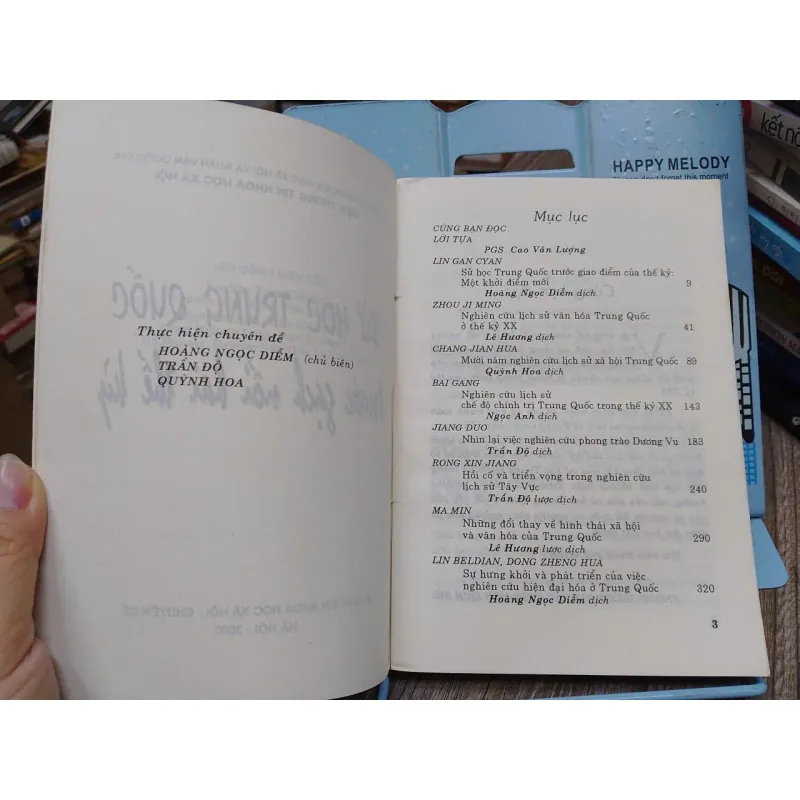 Thực hiện chuyên đề
HOÀNG NGỌC DIỄM (chủ biên)
TRẦN ĐỘ
QUỲNH HOA
Mục lục
CÙNG BẠN ĐỌC
LỜI TỰA
PGS. Cao Văn Lượng
LIN GAN CYAN
Sử học Trung Quốc trước giao điểm của thế kỷ:
Một khởi điểm mới 9
Hoàng Ngọc Diễm dịch
ZHOU JI MING
Nghiên cứu lịch sử văn hóa Trung Quốc
ở thế kỷ XX 41
Lê Hương dịch
CHANG JIAN HUA
Mười năm nghiên cứu lịch sử xã hội Trung Quốc 89
Quỳnh Hoa dịch
BAI GANG
Nghiên cứu lịch sử
chế độ chính trị Trung Quốc trong thế kỷ XX 143
Ngọc Anh dịch
JIANG DUO
Nhìn lại việc nghiên cứu phong trào Dương Vụ 183
Trần Độ dịch
RONG XIN JIANG
Hồi cố và triển vọng trong nghiên cứu
lịch sử Tây Vực 240
Trần Độ lược dịch
MA MIN
Những đổi thay về hình thái xã hội
và văn hóa của Trung Quốc 290
Lê Hương lược dịch
LIN BELDIAN, DONG ZHENG HUA
Sự hưng khởi và phát triển của việc
nghiên cứu hiện đại hóa ở Trung Quốc 320
Hoàng Ngọc Diễm dịch
3
HAPPY MELODY
Please don't forget this moment
kết nố